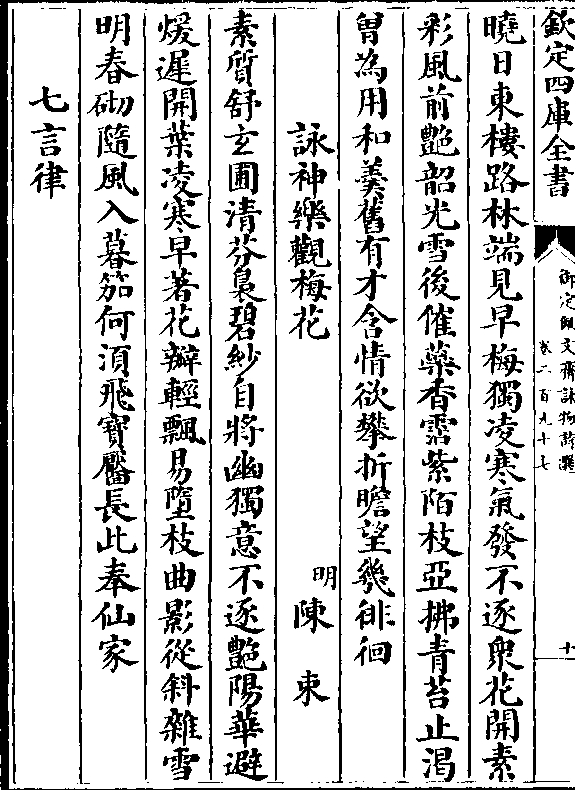 欽定四庫全書
御定佩文齋詠物詩選
卷二百九十七
十
曉日東樓路林端見早梅獨凌寒氣發不逐衆花開素
彩風前艷韶光雪後催蘂香霑紫陌枝亞拂青苔止渴
曽為用和羮舊有才含情欲攀折瞻望幾徘徊
詠神樂觀梅花
明
陳束
素質舒玄圃清芬裊碧紗自將幽獨意不逐艷陽華避
煖遲開葉凌寒早著花瓣輕飄易墮枝曲影從斜雜雪
明春砌隨風入暮笳何湏飛寶靨長此奉仙家
七言律